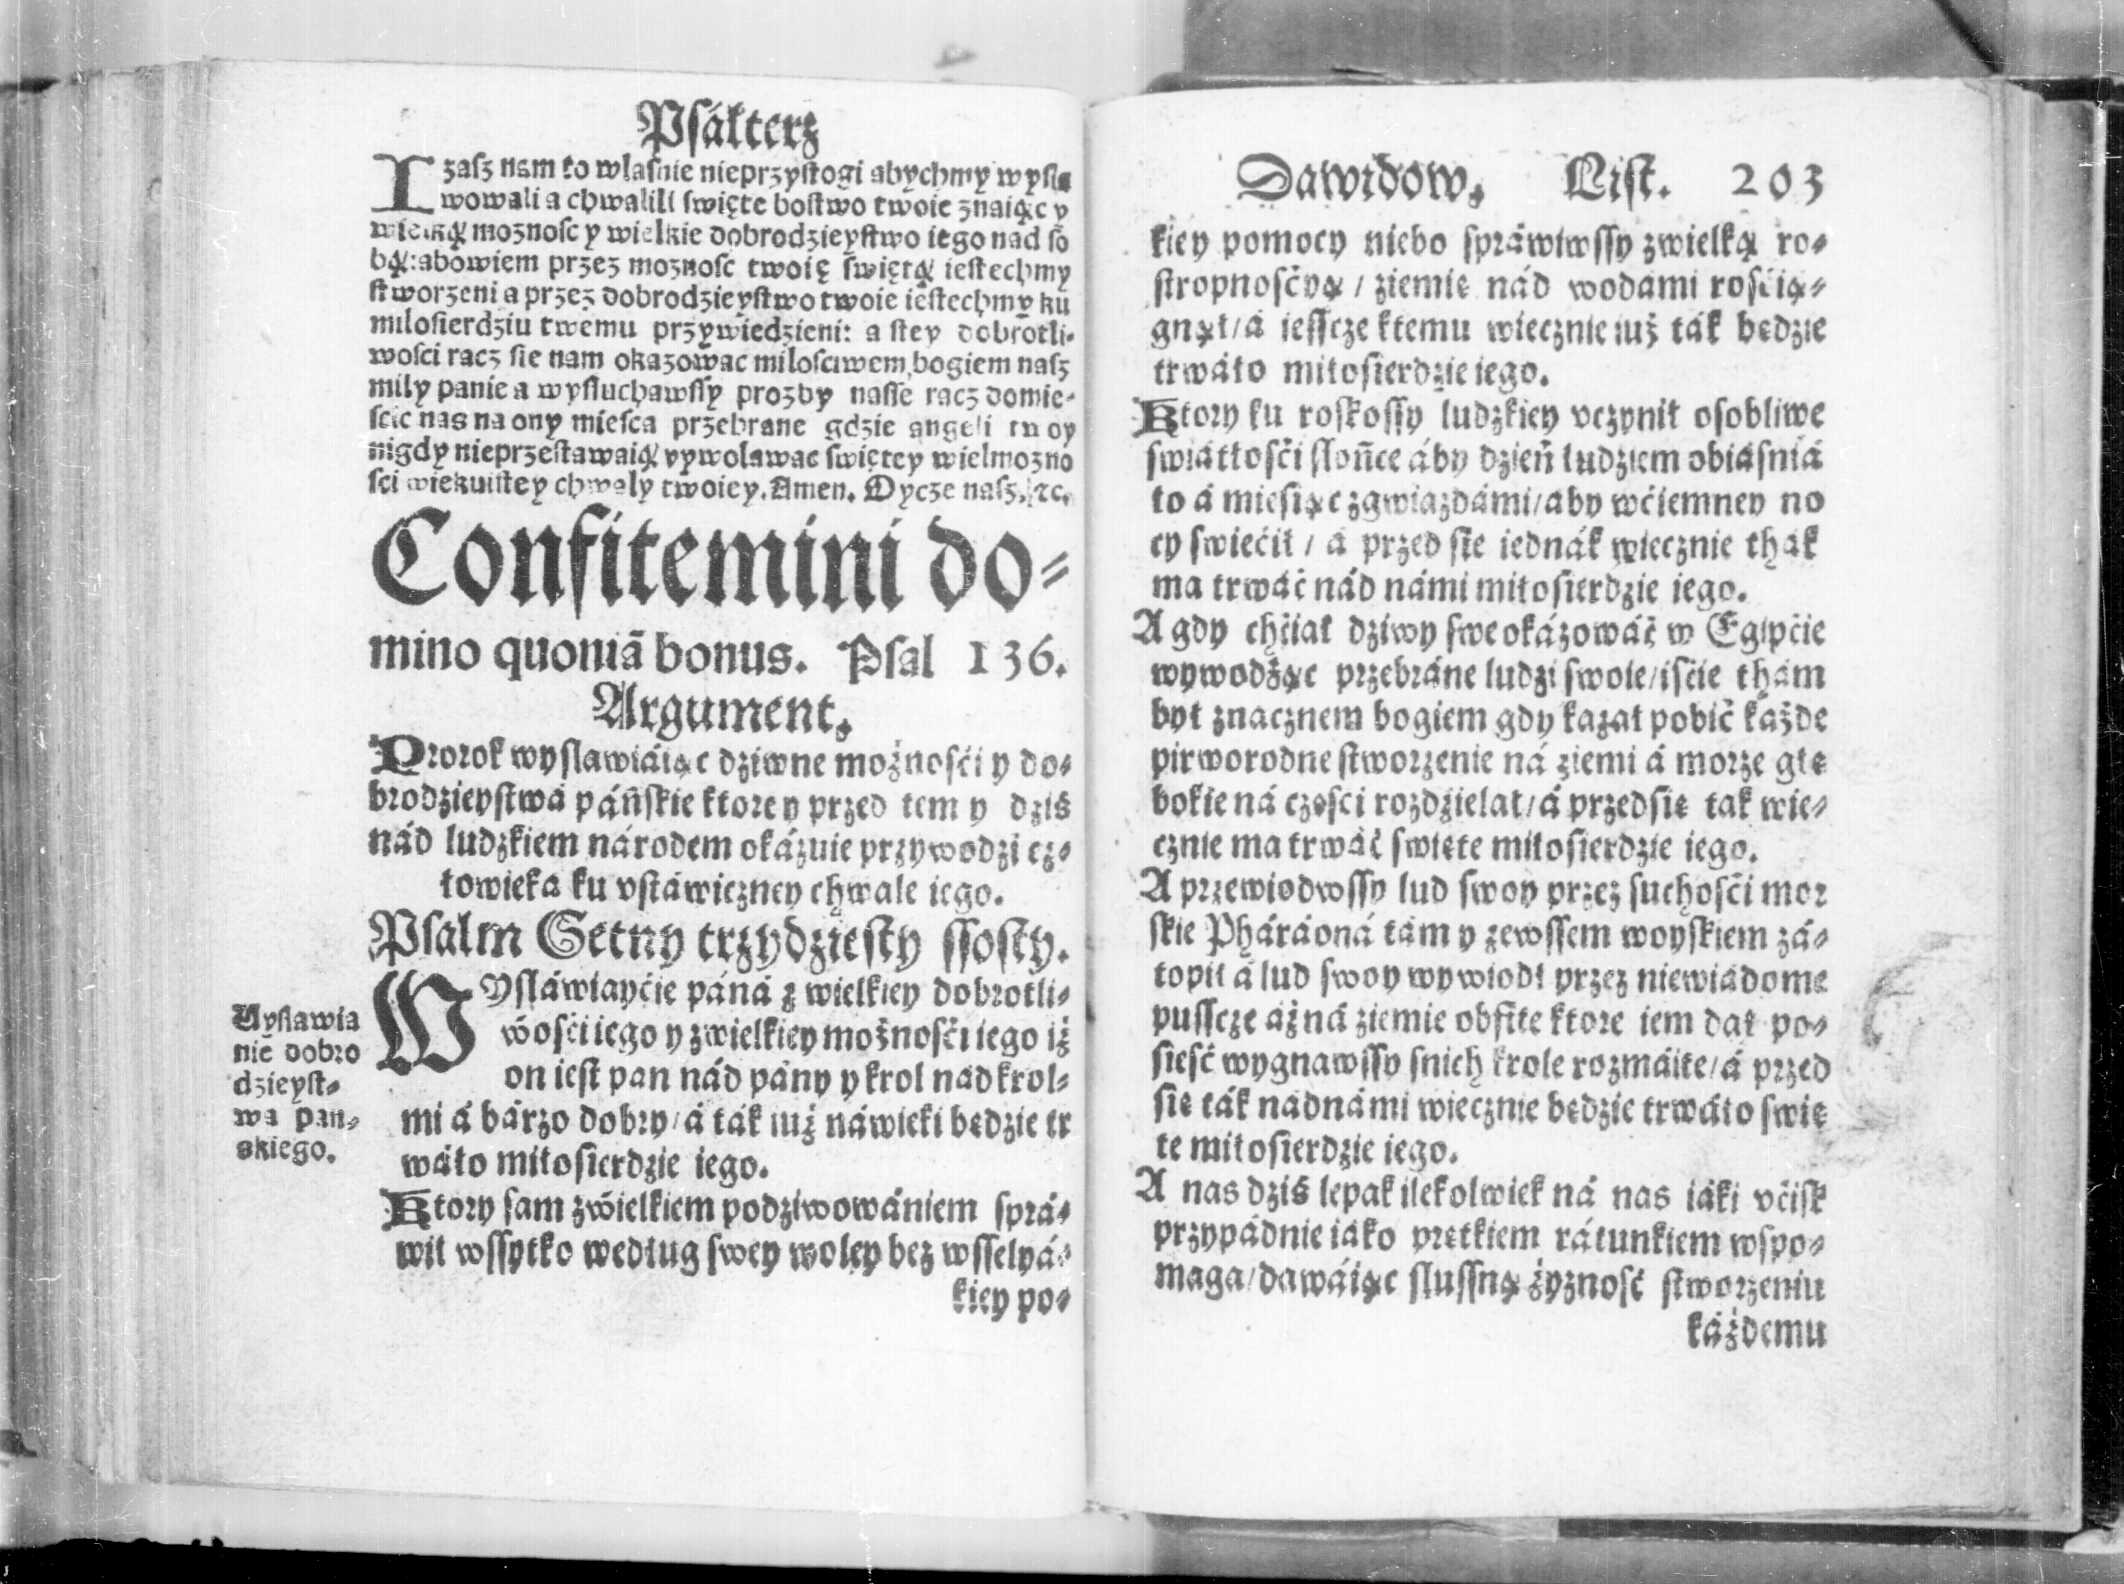 Psáłterz
Izasz nam to wlasnie nieprzystogi abychmy wysla
wowali a chwalili swięte bostwo twoie znaiąc y
wielką moznosc y wielkie dobrodzieystwo iego nad so
bą: abowiem przez moznosc twoię świętą iestechmy
stworzeni a przez dobrodzieystwo twoie iestechmy ku
milosierdziu twemu przywiedzieni: a stey dobrotli-
wosci racz sie nam okazowac milosciwem bogiem nasz
mily panie a wysluchawssy prozby nasse racz domie-
scic nas na ony miesca przebrane gdzie angeli twoy
nigdy nieprzestawaią vywolawac swiętey wielmozno
sci wiekuistey chwaly twoiey. Amen. Oycze nasz. ꝛc.
Confitemini do-
mino quoniã bonus. Psal 136.
Argument.
Prorok wyslawiáiąc dziwne możnosći y do-
brodzieystwá páńskie ktore y przed tem y dziś
nád ludzkiem národem okázuie przywodzi cz-
łowieka ku vstáwiczney chwale iego.
Psalm Setny trzydziesty ssosty.
WYsláwiayćie páná z wielkiey dobrotli-
wośći iego y zwielkiey możnosći iego iż
on iest pan nád pány y krol nád krol-
mi á bárzo dobry/ á ták iuż náwieki będzie tr
wáło miłosierdzie iego.
Ktory sam zwielkiem podziwowániem sprá-
wił wssytko według swey woley bez wsselyá-
kiey po-
Uyslawia
nie dobro
dzieyst-
wa pan-
skiego.
Dawidow. List. 203
kiey pomocy niebo spráwiwssy zwielką ro-
stropnosćyą / ziemię nád wodami rosćią-
gnął/á iesscze ktemu wiecznie iuż ták będzie
trwáło miłosierdzie iego.
Ktory ku roskossy ludzkiey vczynił osobliwe
swiátłosći słońce áby dzień ludziem obiásniá
ło á miesiąc zgwiazdámi/aby wćiemney no
cy swiećił / á przed się iednák wiecznie thak
ma trwáć nád námi miłosierdzie iego.
A gdy chćiał dziwy swe okázowáć w Egipćie
wywodżąc przebráne ludzi swoie/isćie thám
był znacznem bogiem gdy kazał pobić każde
pirworodne stworzenie ná ziemi á morze głę
bokie ná częsci rozdzielał/á przedsię tak wie-
cznie ma trwáć swięte miłosierdzie iego.
A przewiodwssy lud swoy przez suchosći mor
skie Pháráoná tám y zewssem woyskiem zá-
topił á lud swoy wywiodł przez niewiádome
pusscze áż ná ziemie obfite ktore iem dał po-
sieść wygnawssy snich krole rozmáite/á przed
się ták nádnámi wiecznie będzie trwáło swię
te miłosierdzie iego.
A nas dziś lepak ilekolwiek ná nas iáki vćisk
przypádnie iáko prętkiem rátunkiem wspo-
maga/dawáiąc slussną żyzność stworzeniu
káżdemu